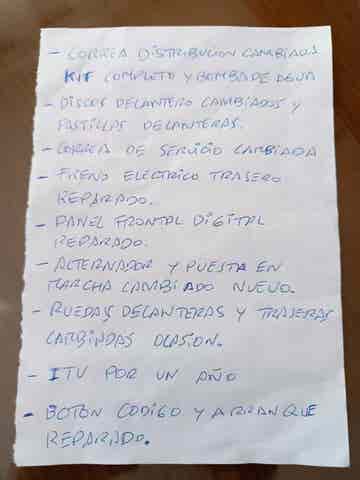 - CORREA DISTRIBUCION CAMBIADA
KIT COMPLETO Y BOMBA DE AGUA
- DISCOS DELANTERO CAMBIADOS Y
PASTILLAS DELANTERAS.
- CORREA DE SERVICIO CAMBIADA
- FRENO ELECTRICO TRASERO
REPARADO.
- PANEL FRONTAL DIGITAL
REPARADO.
- ALTERNADOR Y PUESTA EN
MARCHA CAMBIADO NUEVO.
- RUEDAS DELANTERAS Y TRASERAS
CAMBIADAS OCASION.
- ITV POR UN AÑO
- BOTON CODIGO Y ARRANQUE
REPARADO.